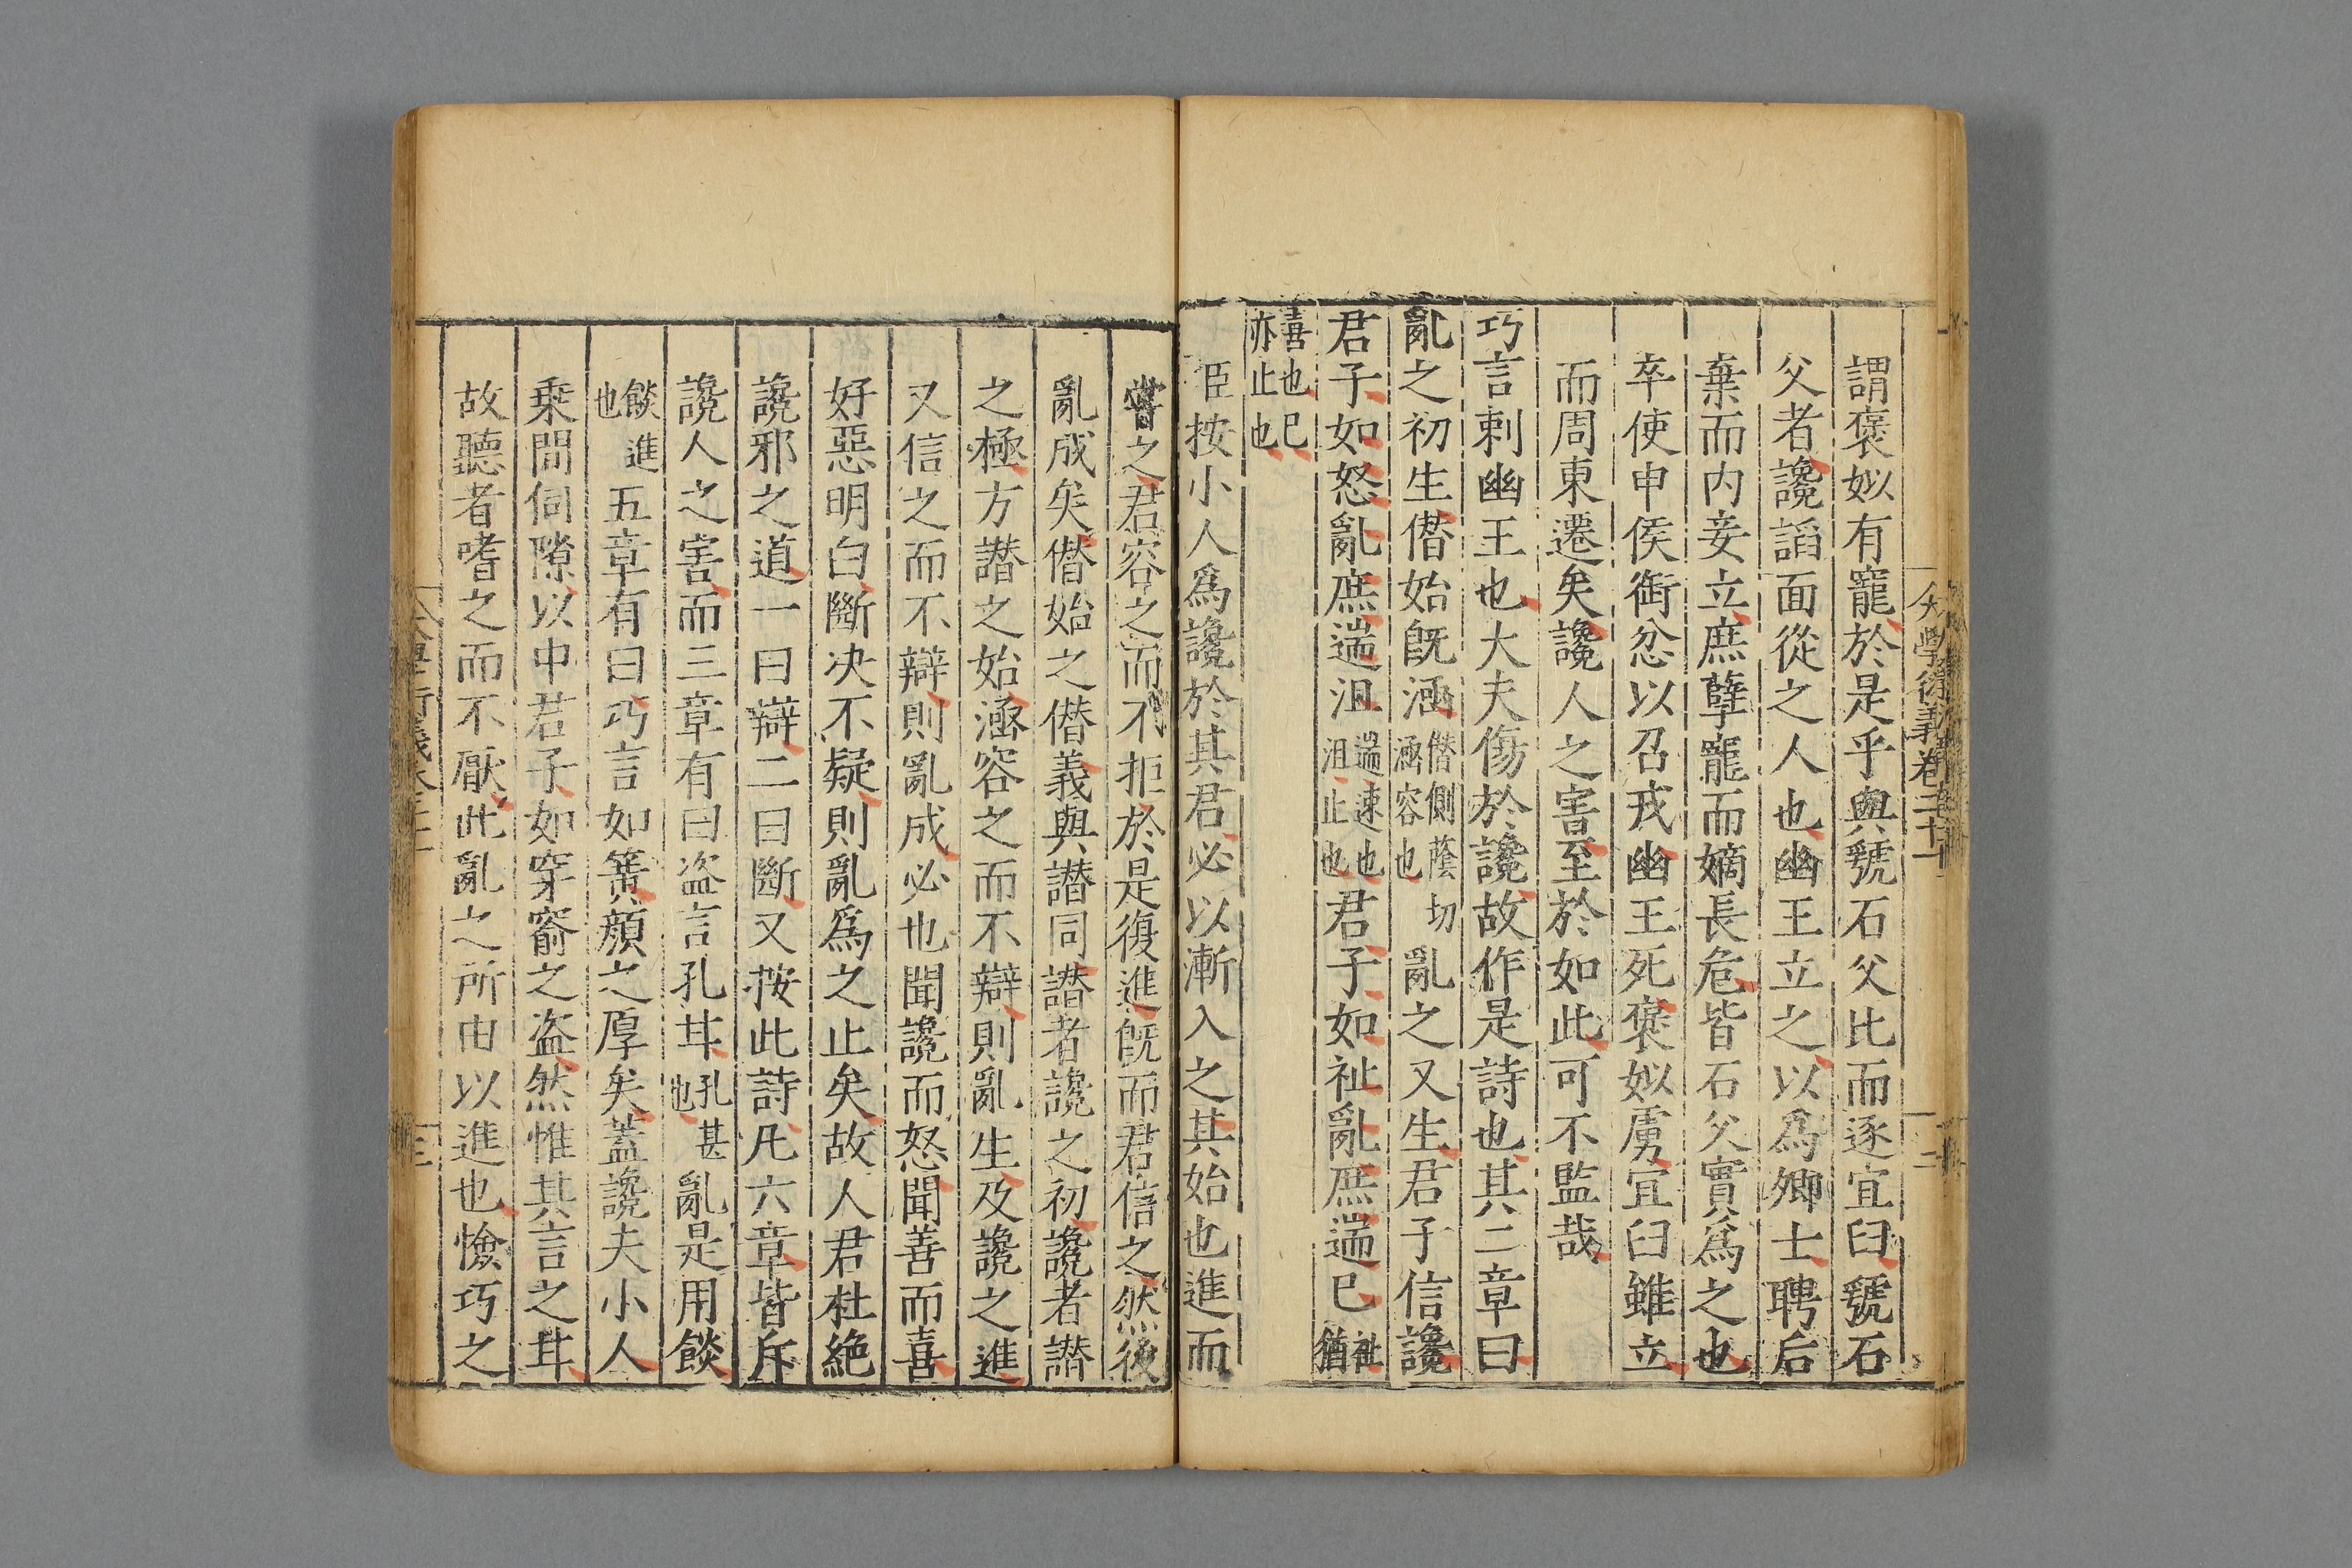 大學衍義卷二十一
二
謂褒姒有寵於是乎與虢石父比而逐宜臼虢石
父者讒諂面從之人也幽王立之以爲卿士聘后
棄而内妾立庶孽寵而嫡長危皆石父實爲之也
卒使申侯銜忿以召戎幽王死褒姒虜宜臼雖立
而周東遷矣讒人之害至於如此可不監哉
巧言剌幽王也大夫傷於讒故作是詩也其二章曰
亂之初生僭始旣涵僭側蔭切涵容也亂之又生君子信讒
君子如怒亂庶遄沮遄速也沮止也君子如祉亂庶遄已祉猶
喜也已亦止也
臣按小人爲讒於其君必以漸入之其始也進而
嘗之君容之而不拒於是復進旣而君信之然後
亂成矣僭始之僭義與譖同譖者讒之初讒者譖
之極方譖之始涵容之而不辯則亂生及讒之進
又信之而不辯則亂成必也聞讒而怒聞善而喜
好惡明白斷决不疑則亂爲之止矣故人君杜絶
讒邪之道一曰辯二曰斷又按此詩凡六章皆斥
讒人之害而三章有曰盗言孔甘孔甚也亂是用餤
餤進也五章有曰巧言如簧顔之厚矣蓋讒夫小人
乗間伺隙以中君子如穿窬之盗然惟其言之甘
故聽者嗜之而不厭此亂之所由以進也憸巧之
三